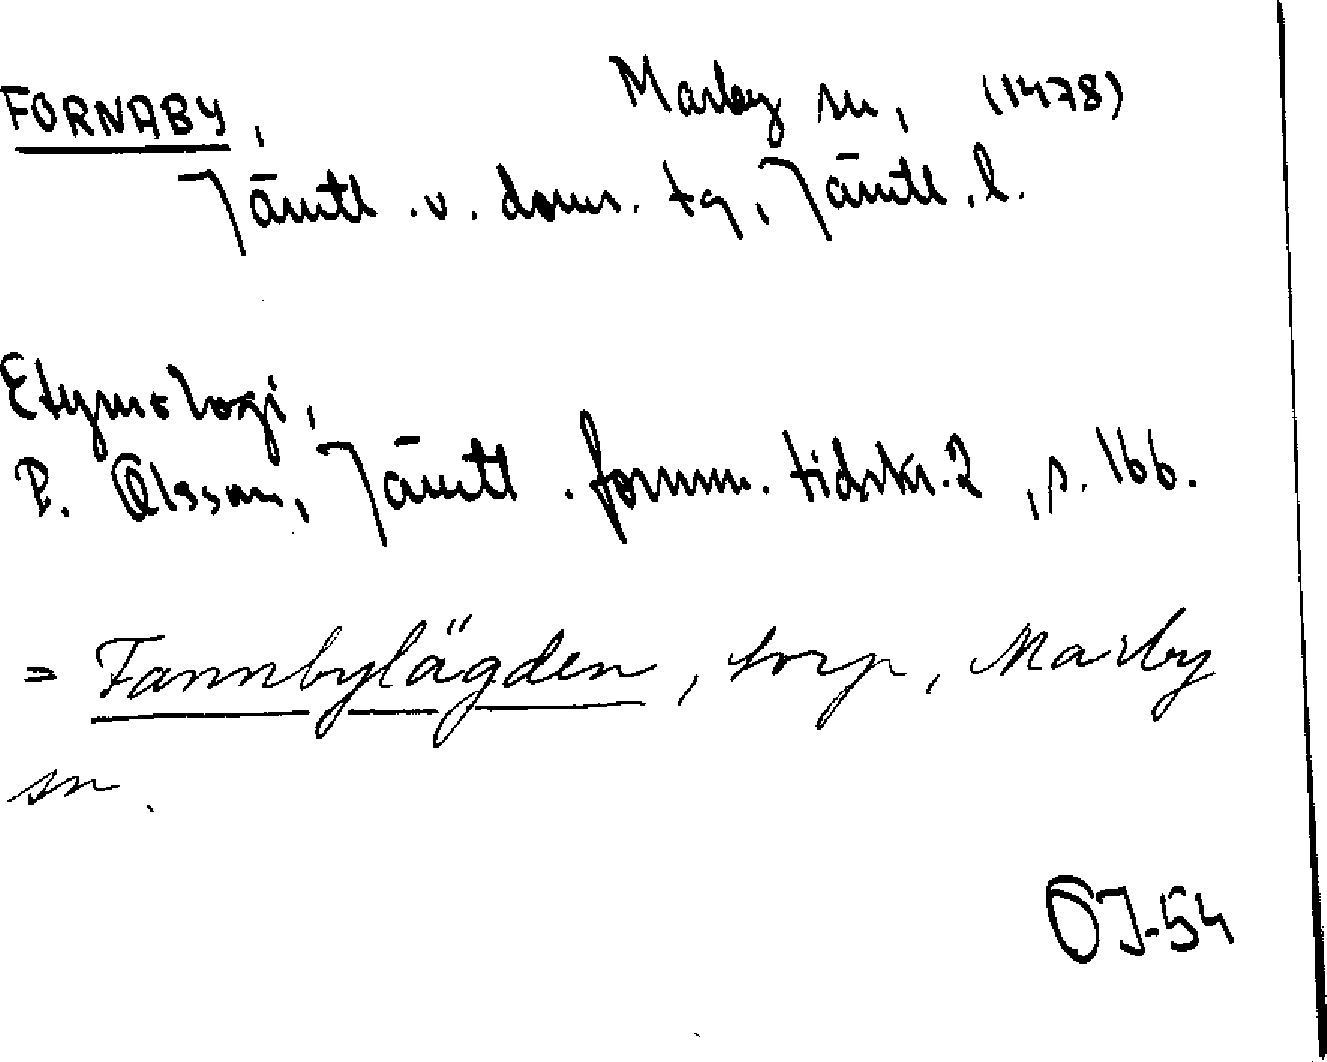 FORNABY, Marby sn, (1478)
Jämtl. v. doms. tg, Jämtl. l.
Etymologi,
P. Olsson, Jämtl. fornm. tidskr. 2, s. 166.
= Fannbylägden, torp, Marby
sn.
OJ-54